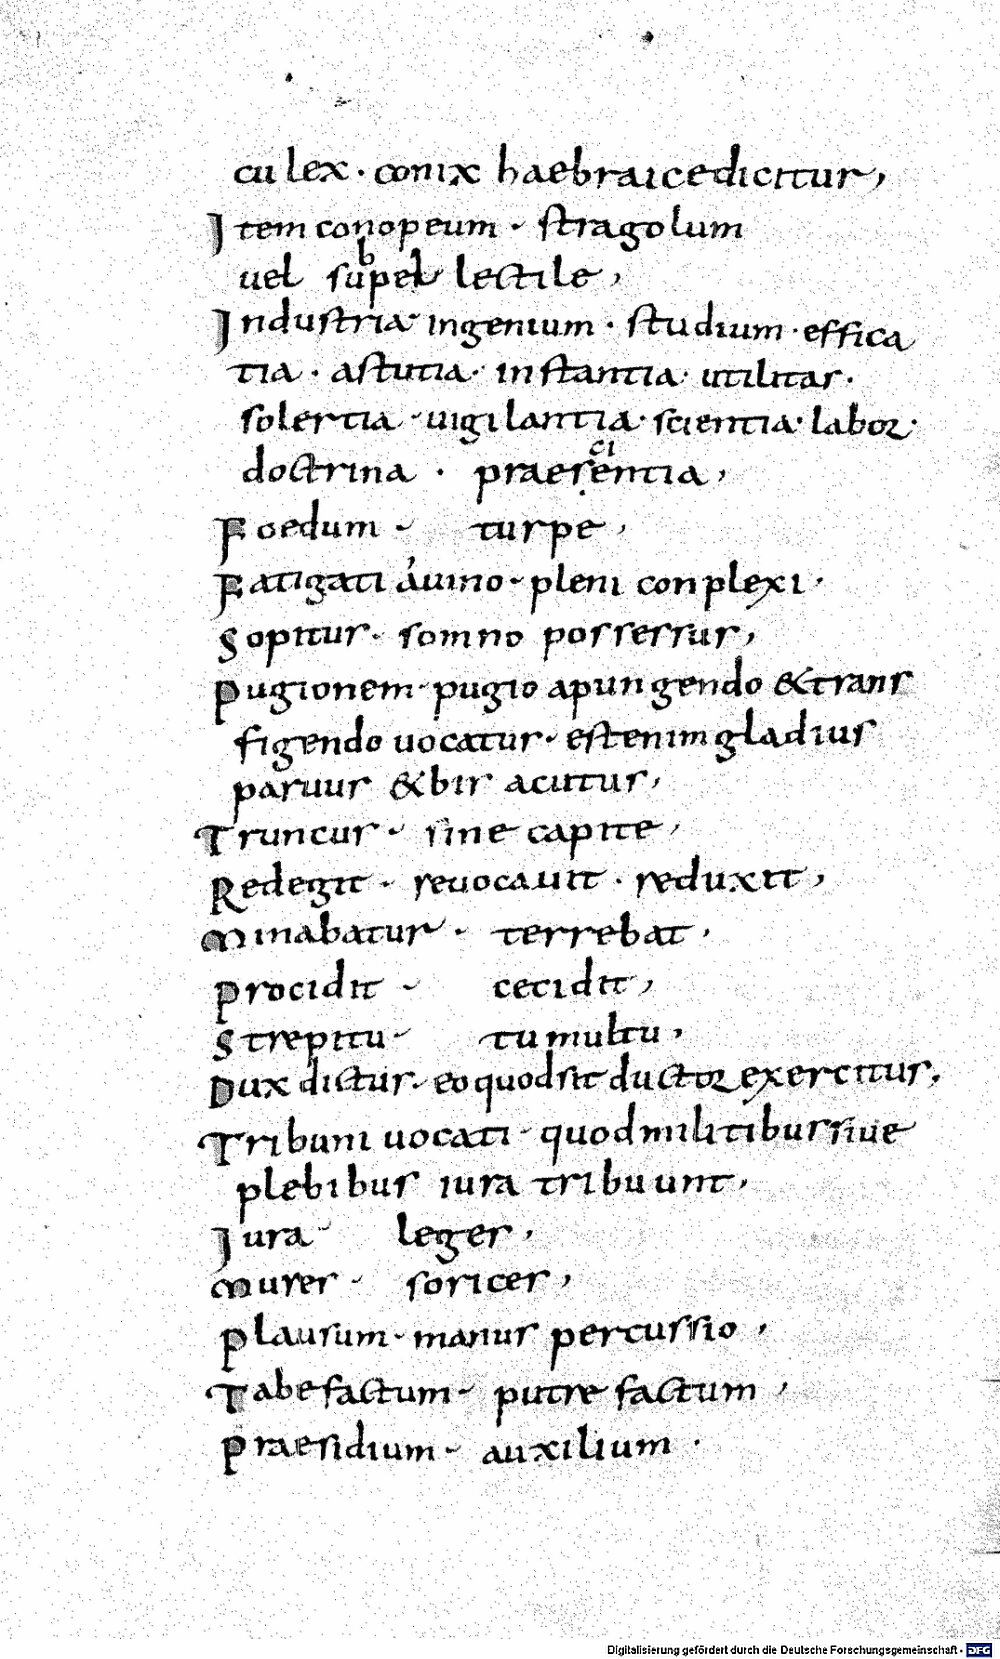 culex · conix haebraice dicitur,
Item conopeum · stragolum
uel subpellectile,
Industria ingenium · studium · effica
tia · astutia · instantia · utilitas ·
solertia · uigilantia · scientia · labor ·
doctrina · praescientia,
Foedum · turpe,
Fatigati a uino · pleni conplexi ·
Sopitus · somno possessus,
Pugionem · pugio a pungendo & trans
figendo uocatur · est enim gladius
paruus & bis acutus,
Truncus · sine capite,
Redegit · reuocauit · reduxit,
Minabatur · terrebat,
Procidit · cecidit,
Strepitu · tumultu,
Dux dictus · eo quod sit ductor exercitus,
Tribuni uocati · quod militibus siue
plebibus iura tribuunt,
Iura · leges,
Mures · sorices,
Plausum · manus percussio,
Tabefactum · putrefactum,
Praesidium · auxilium ·
Digitalisierung gefördert durch die Deutsche Forschungsgemeinschaft - DFG